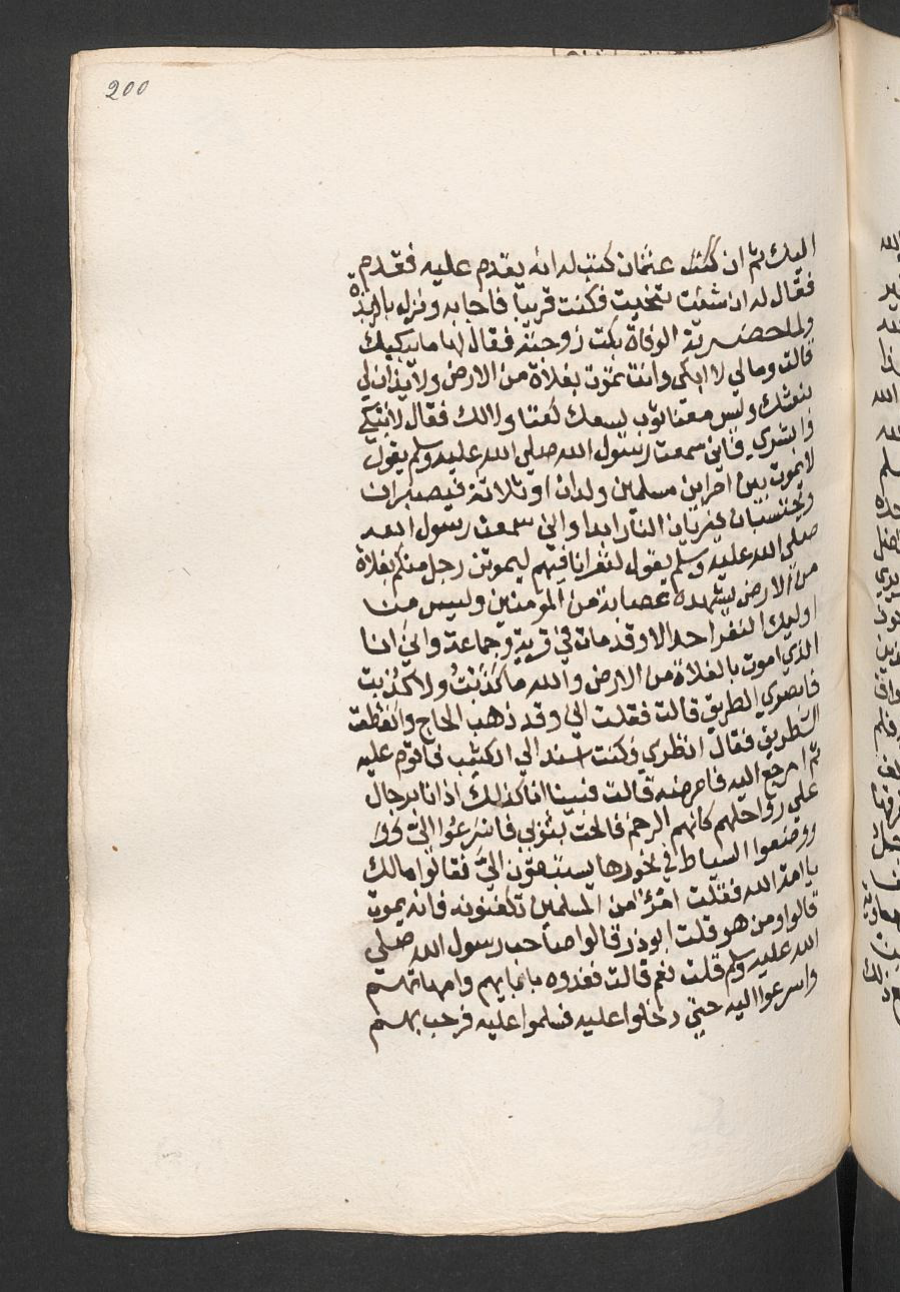 200
اليك ثم ان عثمان كتب له انه يقدم عليه فقدم
فقال له ان شئت تنحيت فكنت قريبا فاجابه ونزل بالربذة
ولما حضرته الوفاة بكت زوجته فقال لها ما يبكيك
قالت ومالي لا ابكي وانت تموت بفلاة من الارض ولا يدان لي
بنعشك وليس معنا ثوب يسعك كفنا ولا لك فقال لا تبكي
وابشري فاني سمعت رسول الله صلي الله عليه وسلم يقول
لا يموت بين امراين مسلمين ولدان او ثلاثة فيصبران
ويحتسبان فيريان النار ابدا واني سمعت رسول الله
صلي الله عليه وسلم يقول لنفر انا فيهم ليموتن رجل منكم بفلاة
من الارض يشهده عصابة من المومنين وليس من
اوليك النفر احد الا وقد مات في قرية وجماعة واني انا
الذي اموت بالفلاة من الارض والله ما كذبت ولا كذبت
فابصري الطريق قالت فقلت اني وقد ذهب الحاج وانقطعت
الطريق فقال انظري فكنت اسند الي الكثيب فاقوم عليه
ثم ارجع اليه فامرضه قالت فبينا انا كذلك اذ انا برجال
علي رواحلهم كانهم الرخم فالحت بثوبي فاسرعوا الي
ووضعوا السياط في نحورها يستبقون الي فقالوا مالك
يا امة الله فقلت امرؤ من المسلمين تكفنونه فانه يموت
قالوا ومن هو قلت ابو ذر قالوا صاحب رسول الله صلي
الله عليه وسلم قلت نعم قالت ففدوه بابايهم وامهاتهم
واسرعوا اليه حتي دخلوا عليه فسلموا عليه فرحب بهم